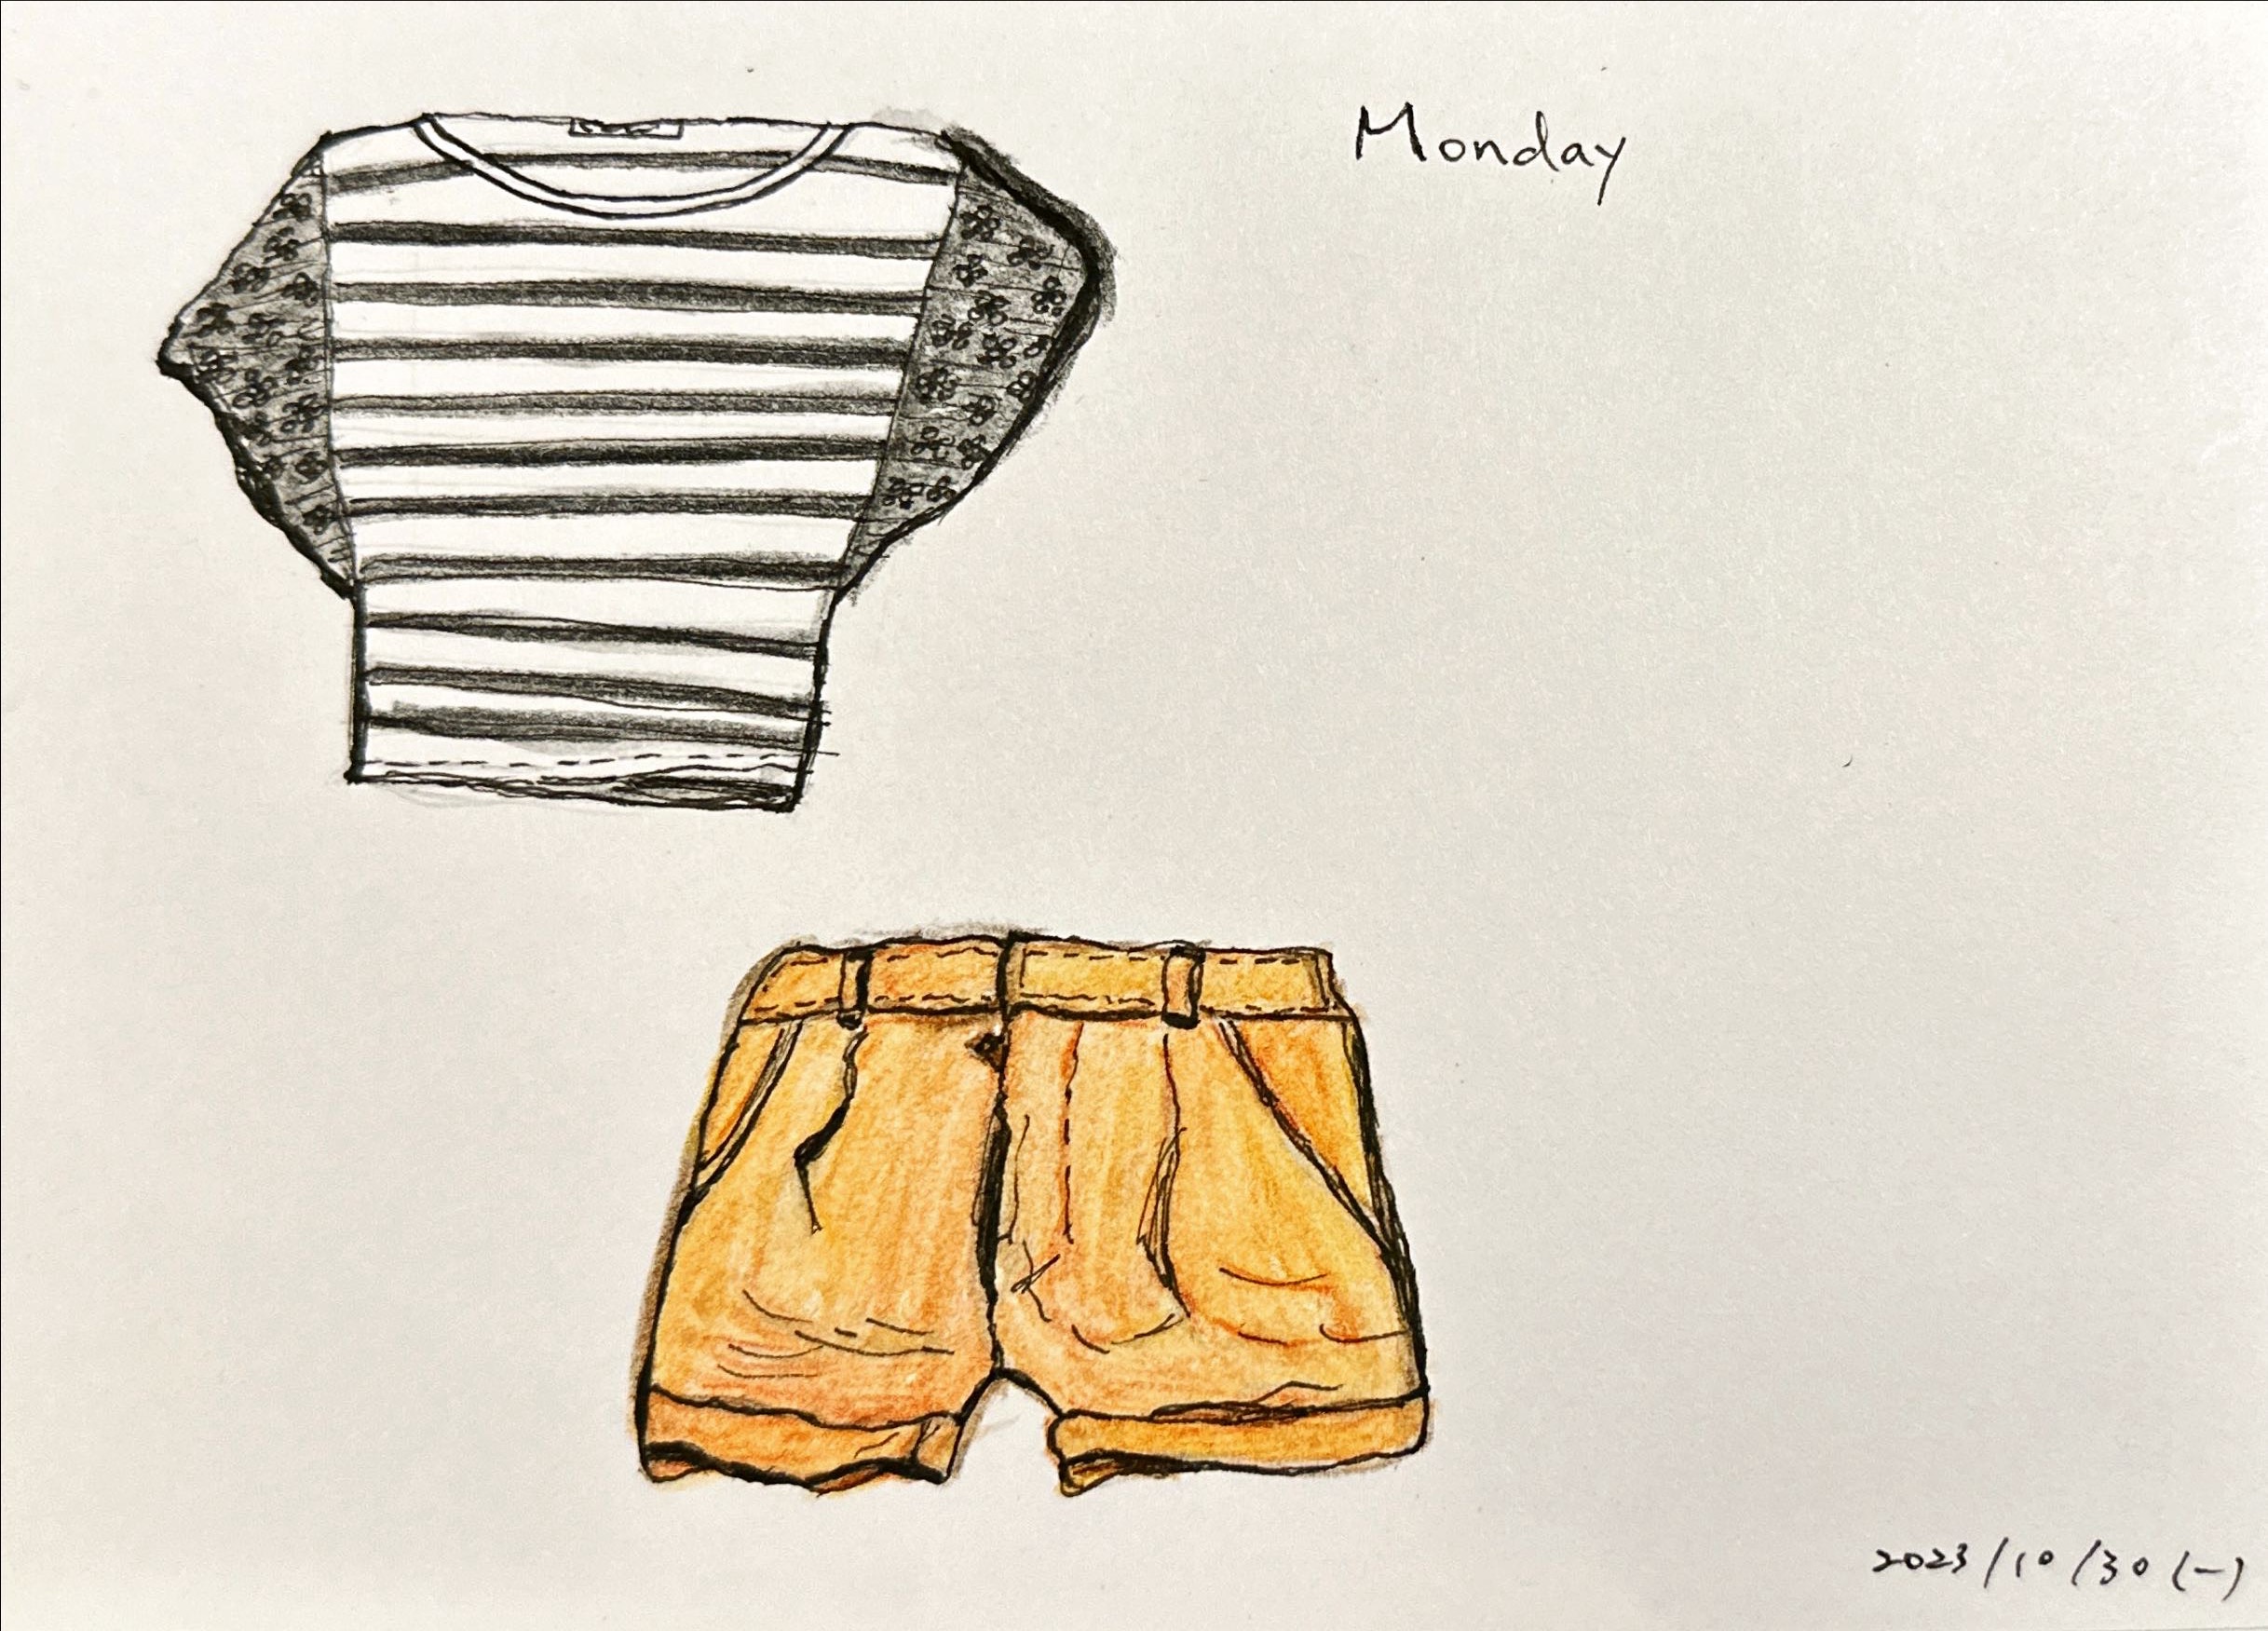 Monday
2023/10/30(一)